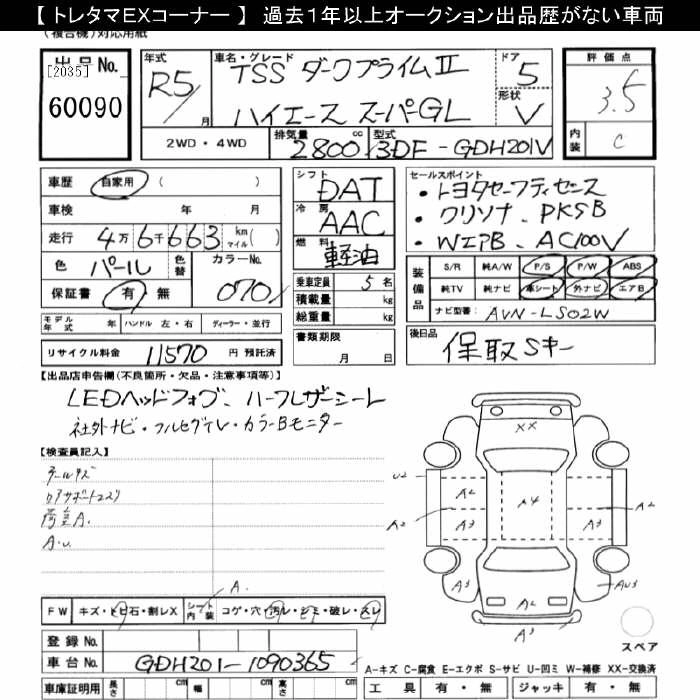 【 トレタマEXコーナー 】 過去1年以上オークション出品歴がない車両
(複合機)対応用紙
出品No.
[2035]
60090
年式
R5/
月
車名・グレード
TSS ダークプライムⅡ
ハイエース スーパーGL
ドア
5
形状
V
評価点
3.5
内装
C
2WD・4WD
排気量
2800
cc
型式
3DF-GDH201V
車歴
自家用
( )
車検
年 月
走行
4万6千663
km
マイル( )
色
パール
色替
カラーNo.
070
保証書
有・無
モデル年式
年
ハンドル 左・右
ディーラー・並行
リサイクル料金
11570
円 預託済
シフト
DAT
冷房
AAC
燃料
軽油
乗車定員
5名
積載量
kg
総重量
kg
書類期限
月 日
セールスポイント
・トヨタセーフティセンス
・クリソナ、PKSB
・WエアB、AC100V
装備品
S/R
純A/W
P/S
P/W
ABS
純TV
純ナビ
革シート
外ナビ
エアB
ナビ型番:
AVN-LS02W
後日品
保取Sキー
【出品店申告欄(不良箇所・欠品・注意事項等)】
LEDヘッドフォグ、ハーフレザーシート
社外ナビ・フルセグTV・カラーBモニター
【検査員記入】
A.U.
A.
FW
キズ・トビ石・割レX
シート内装
コゲ・穴・汚レ・シミ・破レ・スレ
登録No.
車台No.
GDH201-1090365
車庫証明用
長さ
cm
幅
cm
高さ
cm
XX
U2
A2
A2
A4
A2
A2
A3
A3
A3
A2
AU3
A3
スペア
A-キズ C-腐食 E-エクボ S-サビ U-凹ミ W-補修 XX-交換済
工具
有・無
ジャッキ
有・無